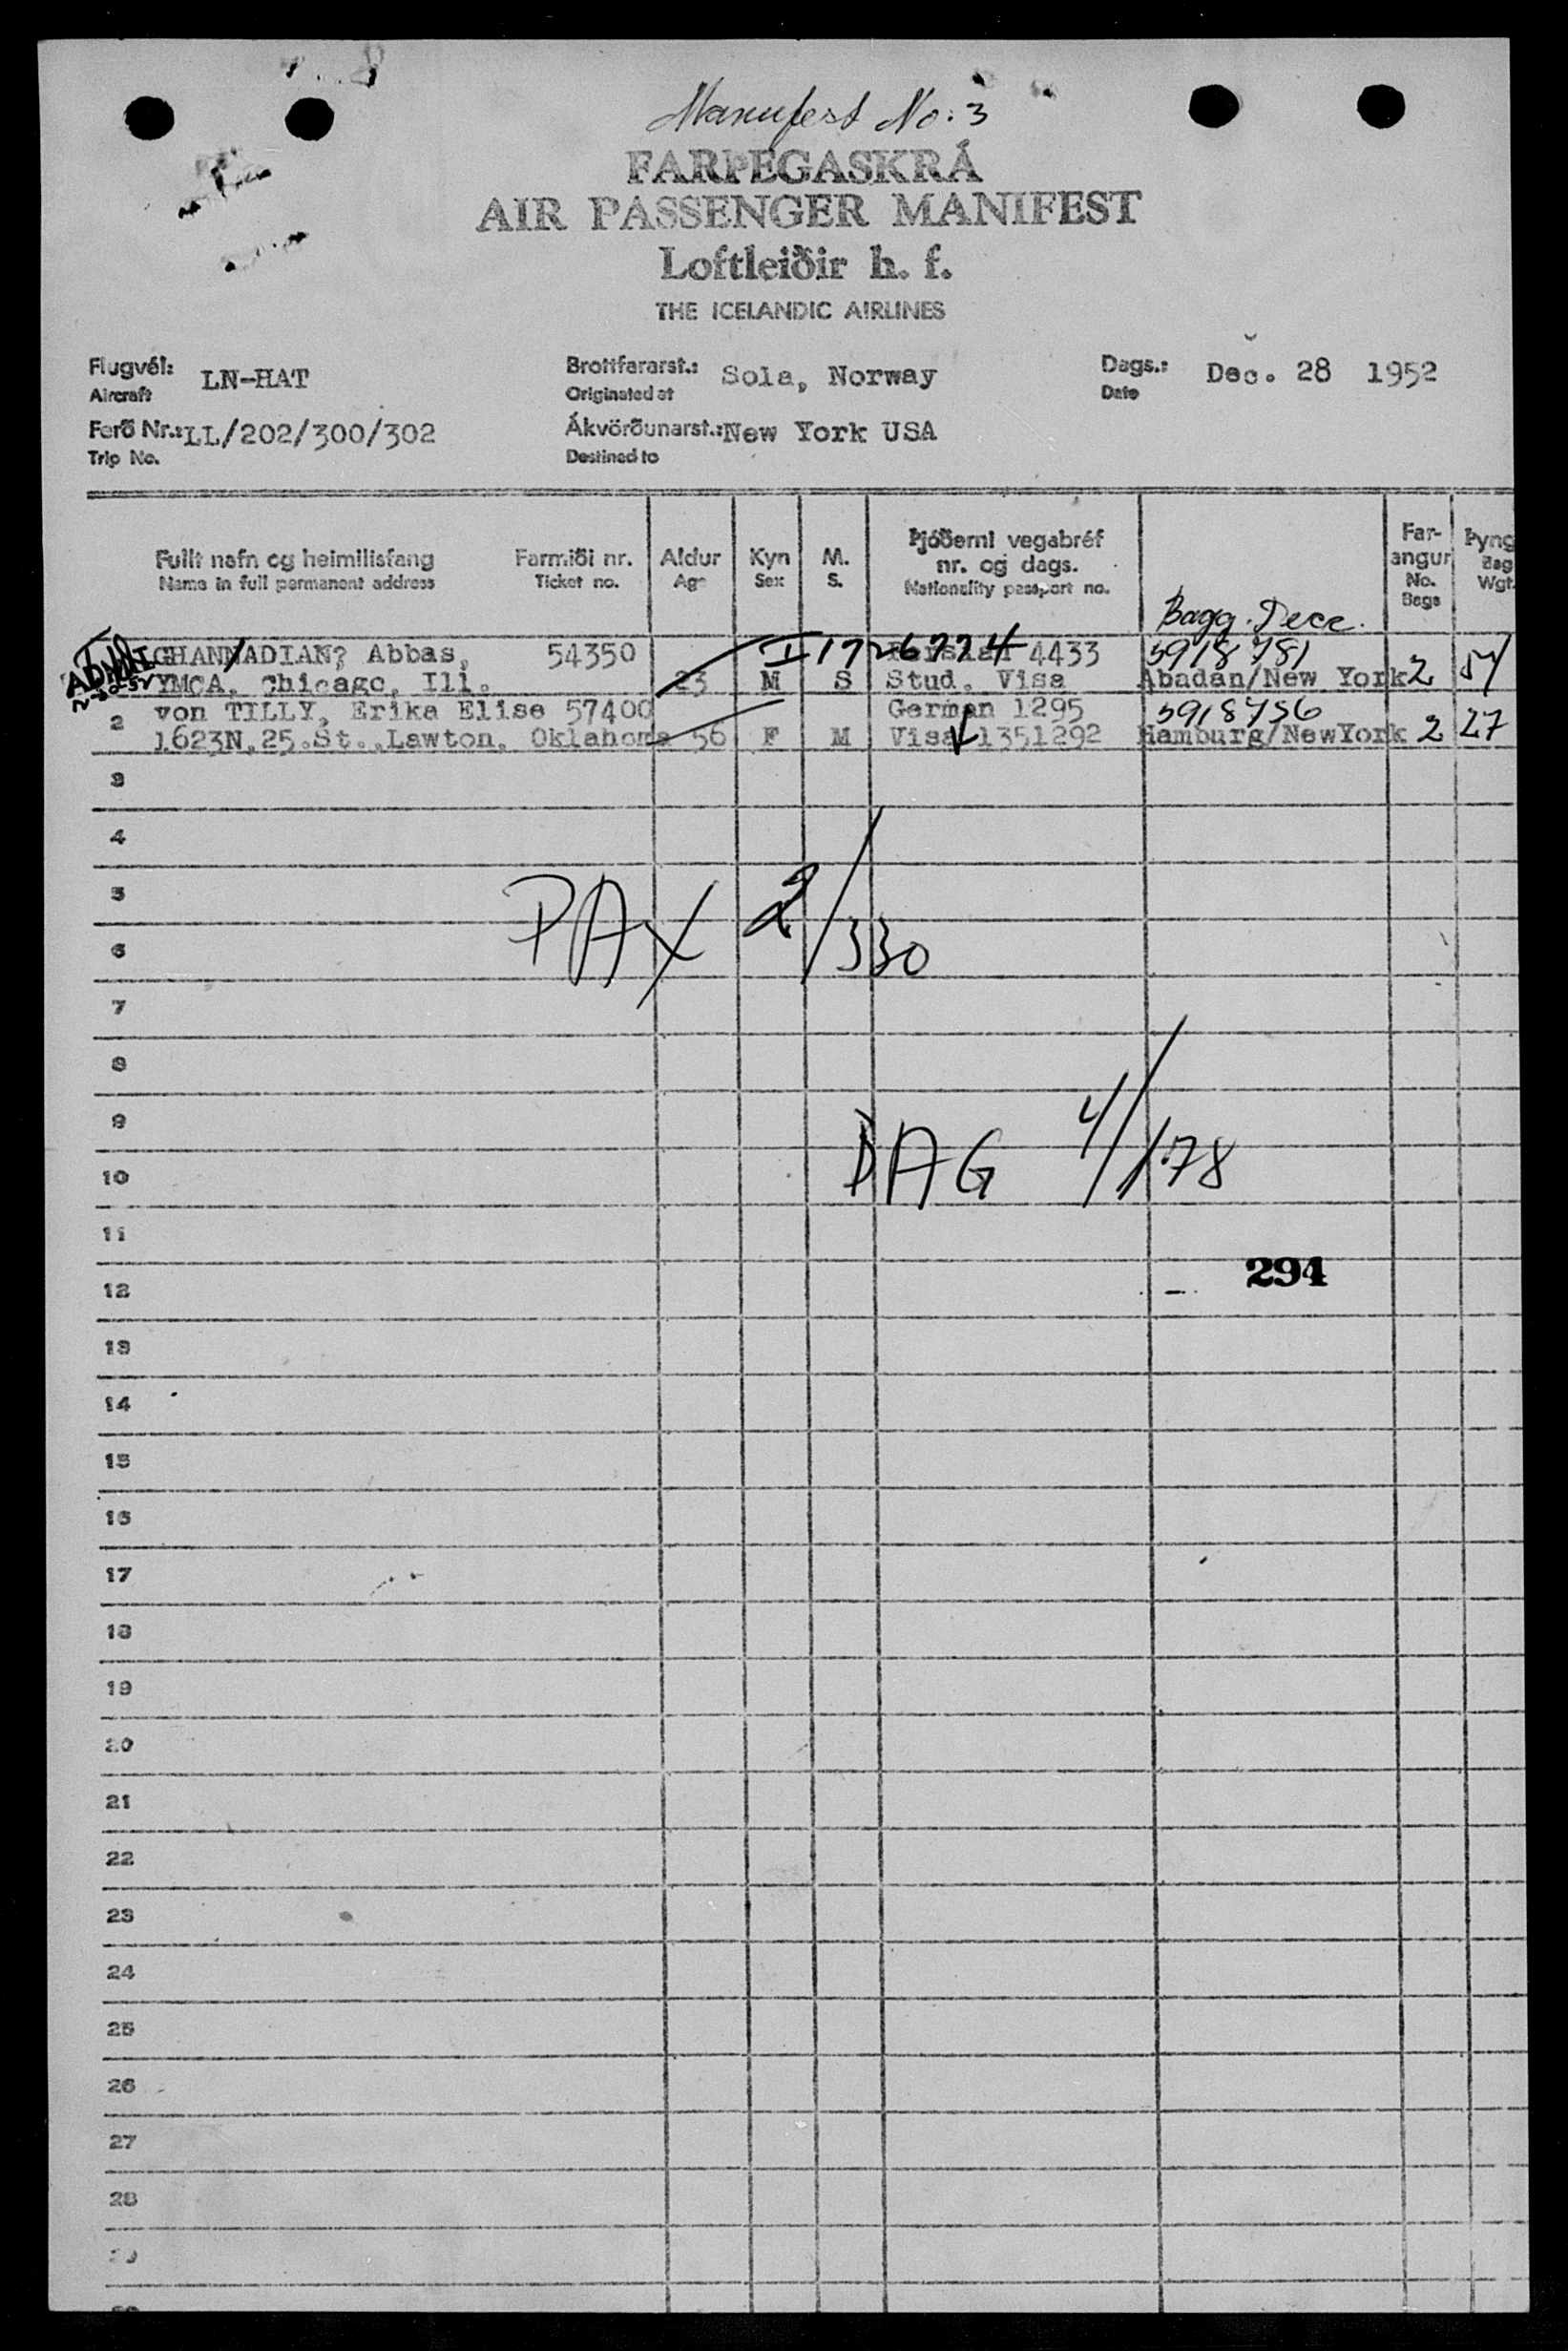 Manufest No. 3
FARÞEGASKRÁ
AIR PASSENGER MANIFEST
Loftleiðir h. f.
THE ICELANDIC AIRLINES
Flugvél: LN-HAT
Aircraft
Brottfararst.: Sola, Norway
Originated at
Dags.: Dec. 28 1952
Date
Ferð Nr.: LL/202/300/302
Trip No.
Ákvörðunarst.: New York USA
Destined to
Fullt nafn og heimilisfang
Name in full permanent address
Farmiði nr.
Ticket no.
Aldur
Age
Kyn
Sex
M.
S.
Þjóðerni vegabréf
nr. og dags.
Nationality passport no.
Bagg. Decc.
Far-
angur
No.
Bags
Þyng
Bag
Wgt.
GHANNADIAN? Abbas, 54350 I1726774 Persian 4433 5918781
YMCA, Chicago, Ill. 23 M S Stud. Visa Abadan/New York 2
2 von TILLY, Erika Elise 57400 German 1295 5918756
1623N.25.St., Lawton, Oklahoma 56 F M Visa 1351292 Hamburg/NewYork 2 27
3
4
5
PAX 2/330
6
7
8
9
BAG 4/178
10
11
294
12
13
14
15
16
17
18
19
20
21
22
23
24
25
26
27
28